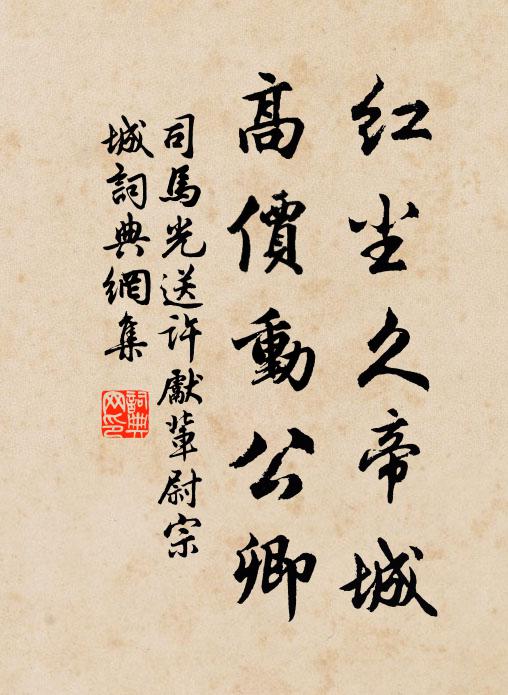 红尘久帝城
高價動公卿
司馬光送許獻輩尉宗
城詞典網集
詞典网印